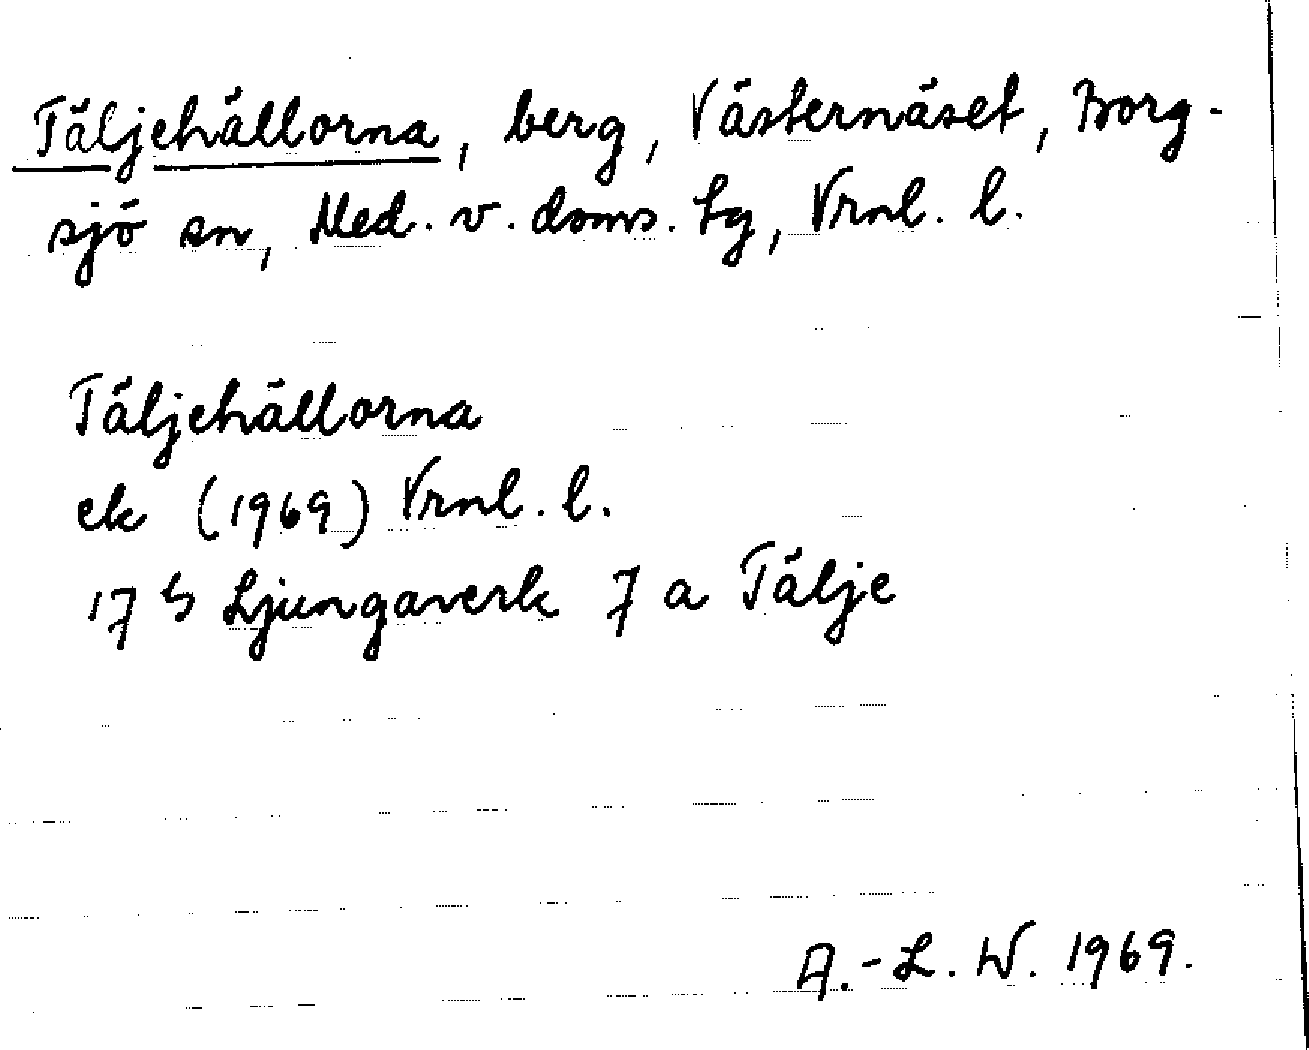 Täljehällorna, berg, Västernäset, Borg-
sjö sn, Med. v. doms. Lg, Vrnl. l.
Täljehällorna
ek (1969) Vrnl. l.
17 h Ljungaverk 7 a Tälje
A.-L. W. 1969.